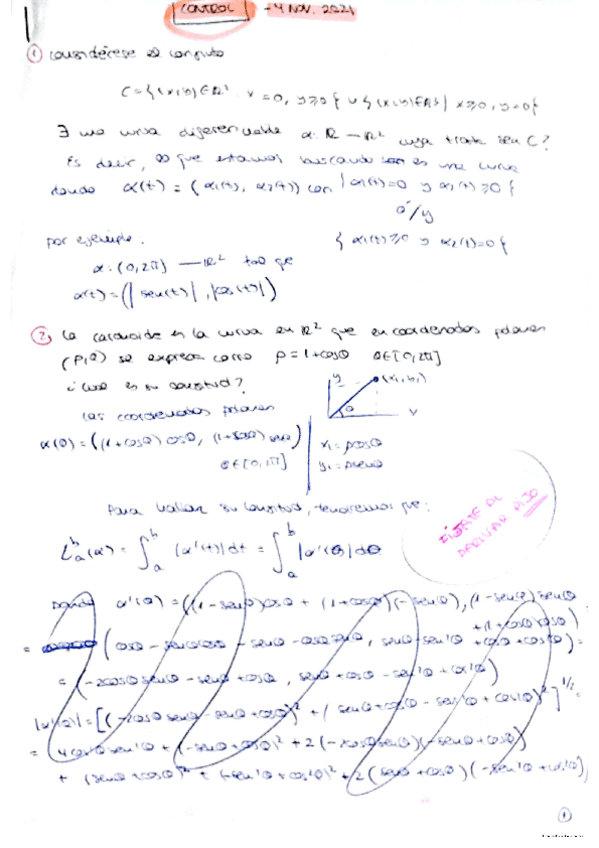 CONTROL - 4 NOV. 2021
① Considérese el conjunto
C = { (x,y) ∈ R² : x = 0, y ≥ 0 } ∪ { (x,y) ∈ R² | x ≥ 0, y = 0 }
∃ una curva diferenciable α: R — R² cuya traza sea C?
Es decir, lo que estamos buscando es una curva
donde α(t) = (α₁(t), α₂(t)) con | α₁(t) = 0 y α₂(t) ≥ 0 {
o/y
por ejemplo. { α₁(t) ≥ 0 y α₂(t) = 0 {
α: (0, 2π) — R² tal que
α(t) = (| sen(t) |, |cos(t)|)
② La cardioide es la curva en R² que en coordenadas polares
(ρ, θ) se expresa como ρ = 1 + cosθ θ ∈ [0, 2π]
¿Cual es su longitud?
y (x₁, y₁)
θ x
Las coordenadas polares
α(θ) = ((1+cosθ) cosθ, (1+cosθ) senθ) x₁ = ρcosθ
θ ∈ [0, 2π] y₁ = ρsenθ
Para hallar su longitud, tendremos que:
FÍJATE AL
DERIVAR
L_a^b(α) = ∫_a^b |α'(t)| dt = ∫_a^b |α'(θ)| dθ
donde α'(θ) = ((1-senθ)cosθ + (1+cosθ)(-senθ), (1-senθ)senθ
+ (1+cosθ)cosθ)
= (cosθ - senθcosθ - senθ - cosθsenθ, senθ - sen²θ + cosθ + cos²θ) =
= (-2cosθsenθ - senθ + cosθ, senθ + cosθ - sen²θ + cos²θ)
|α'(θ)| = [(-2cosθsenθ - senθ + cosθ)² + (senθ + cosθ - sen²θ + cos²θ)²]^1/2 =
= 4cos²θsen²θ + (-senθ + cosθ)² + 2(-2cosθsenθ)(-senθ + cosθ)
+ (senθ + cosθ)² + (-sen²θ + cos²θ)² + 2(senθ + cosθ)(-sen²θ + cos²θ)
①